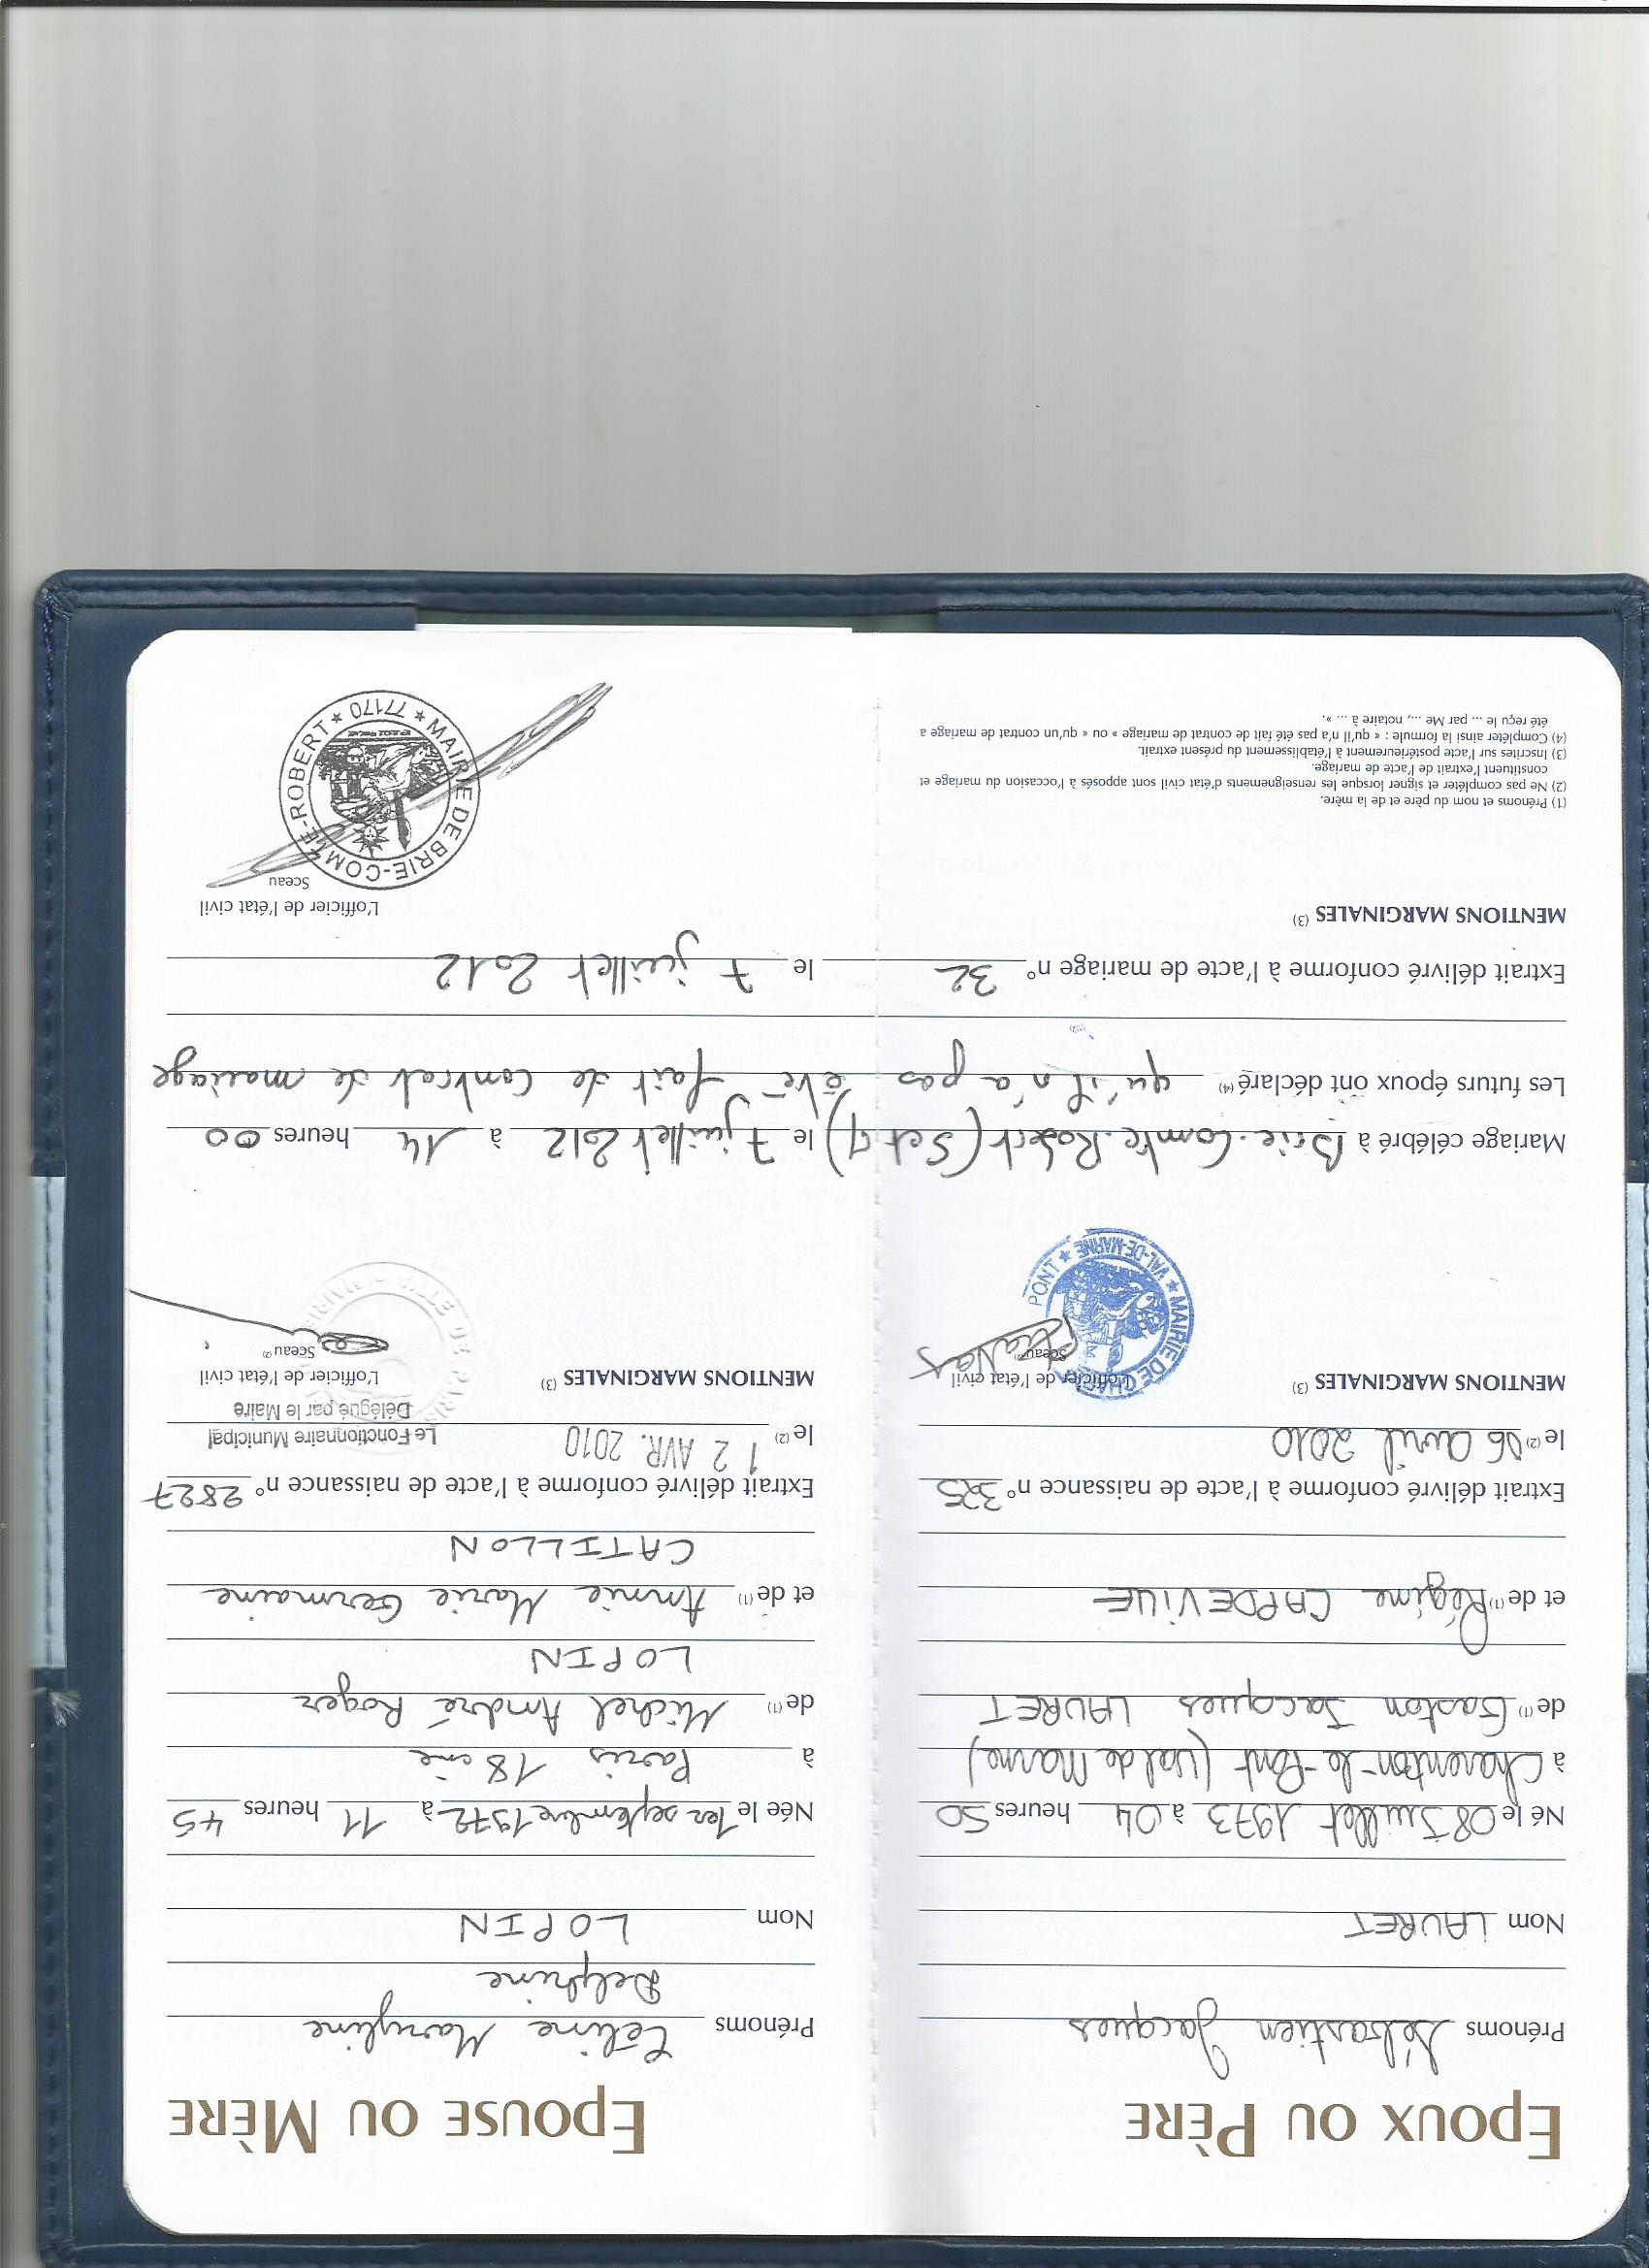 EPOUX OU PÈRE
Prénoms Sébastien Jacques
Nom LAURET
Né le 08 Juillet 1973 à 04 heures 50
à Charenton-le-Pont (Val de Marne)
de (1) Gaston Jacques LAURET
et de (1) Régine CAPDEVILLE
Extrait délivré conforme à l'acte de naissance n° 325
le (2) 06 avril 2010
MENTIONS MARGINALES (3)
L'officier de l'état civil
Sceau (2)
MAIRIE DE PONT ★ VAL-DE-MARNE ★
EPOUSE OU MÈRE
Prénoms Céline Maryline
Delphine
Nom LOPIN
Née le 1er septembre 1972 à 11 heures 45
à Paris 18ème
de (1) Michel André Roger
LOPIN
et de (1) Annie Marie Germaine
CATILLON
Extrait délivré conforme à l'acte de naissance n° 2827
le (2) 12 AVR. 2010
Le Fonctionnaire Municipal
Délégué par le Maire
MENTIONS MARGINALES (3)
L'officier de l'état civil
Sceau (2)
MAIRIE DE PARIS
Mariage célébré à Brie-Comte-Robert (S et M) le 7 juillet 2012 à 14 heures 00
Les futurs époux ont déclaré (4) qu'il n'a pas été fait de contrat de mariage
Extrait délivré conforme à l'acte de mariage n° 32 le 7 juillet 2012
MENTIONS MARGINALES (3)
L'officier de l'état civil
Sceau
MAIRIE DE BRIE-COMTE-ROBERT ★ 77170 ★
(1) Prénoms et nom du père et de la mère.
(2) Ne pas compléter et signer lorsque les renseignements d'état civil sont apposés à l'occasion du mariage et
constituent l'extrait de l'acte de mariage.
(3) Inscrites sur l'acte postérieurement à l'établissement du présent extrait.
(4) Compléter ainsi la formule : « qu'il n'a pas été fait de contrat de mariage » ou « qu'un contrat de mariage a
été reçu le ... par Me ..., notaire à ... ».